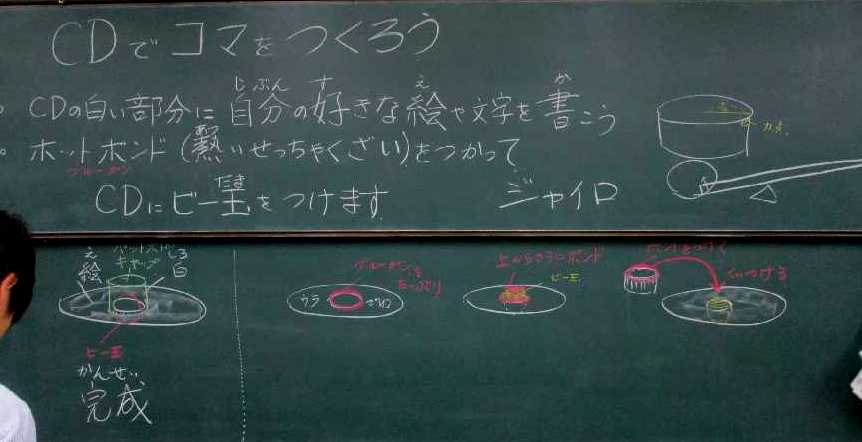 CDでコマをつくろう
。CDの白い部分に自分の好きな絵や文字を書こう
じぶん す え か
。ホットボンド(熱いせっちゃくざい)をつかって
グルーガン
CDにビー玉をつけます
だま
ジャイロ
え
絵
キャップ
しろ
白
ビー玉
かんせい
完成
ウラ
グルーガンを
たっぷり
上からさらにボンド
ビー玉
くっつける